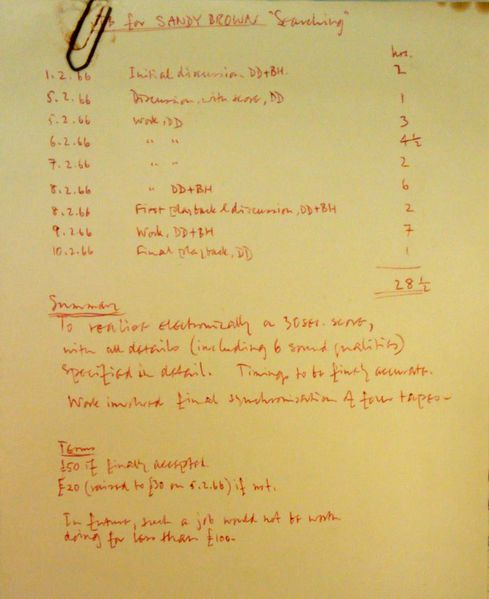 Job for SANDY BROWN "Searching"
hrs.
1.2.66 Initial discussion DD+BH. 2
5.2.66 Discussion, with score, DD 1
5.2.66 Work, DD 3
6.2.66 " " 4½
7.2.66 " " 2
8.2.66 " DD+BH 6
8.2.66 First playback & discussion, DD+BH 2
9.2.66 Work, DD+BH 7
10.2.66 Final playback, DD 1
28½
Summary
To realise electronically a 30 sec. score,
with all details (including 6 sound qualities)
specified in detail. Timings to be finely accurate.
Work involved final synchronisation of four tapes.
Terms
£50 if finally accepted.
£20 (raised to £30 on 5.2.66) if not.
In future, such a job would not be worth
doing for less than £100.